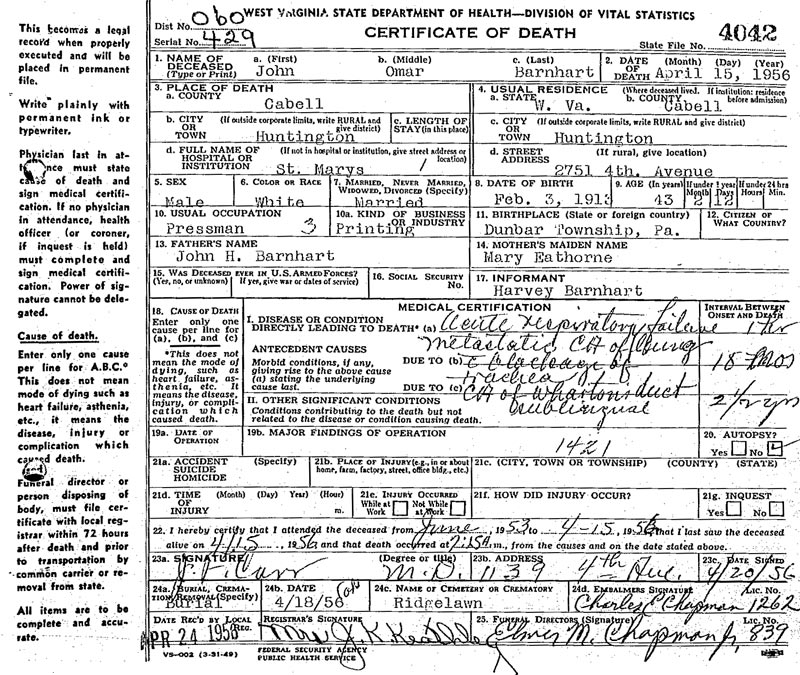 This becomes a legal
record when properly
executed and will be
placed in permanent
file.
Write plainly with
permanent ink or
typewriter.
Physician last in at-
nce must state
cause of death and
sign medical certifi-
cation. If no physician
in attendance, health
officer (or coroner,
if inquest is held)
must complete and
sign medical certifi-
cation. Power of sig-
nature cannot be dele-
gated.
Cause of death.
Enter only one cause
per line for A.B.C.*
This does not mean
mode of dying such as
heart failure, asthenia,
etc., it means the
disease, injury or
complication which
caused death.
Funeral director or
person disposing of
body, must file cer-
tificate with local reg-
istrar within 72 hours
after death and prior
to transportation by
common carrier or re-
moval from state.
All items are to be
complete and accu-
rate.
WEST VIRGINIA STATE DEPARTMENT OF HEALTH—DIVISION OF VITAL STATISTICS
Dist No. 060
CERTIFICATE OF DEATH
4042
Serial No. 429
State File No.
1. NAME OF DECEASED (Type or Print) a. (First) b. (Middle) c. (Last) 2. DATE OF DEATH (Month) (Day) (Year)
John Omar Barnhart April 15, 1956
3. PLACE OF DEATH
a. COUNTY
Cabell
4. USUAL RESIDENCE (Where deceased lived. If institution: residence before admission)
a. STATE b. COUNTY
W. Va. Cabell
b. CITY OR TOWN (If outside corporate limits, write RURAL and give district)
Huntington
c. LENGTH OF STAY (in this place)
c. CITY OR TOWN (If outside corporate limits, write RURAL and give district)
Huntington
d. FULL NAME OF HOSPITAL OR INSTITUTION (If not in hospital or institution, give street address or location)
St. Marys
d. STREET ADDRESS (If rural, give location)
2751 4th. Avenue
5. SEX
Male
6. COLOR OR RACE
White
7. MARRIED, NEVER MARRIED, WIDOWED, DIVORCED (Specify)
Married
8. DATE OF BIRTH
Feb. 3, 1913
9. AGE (In years) If under 1 year Months Days If under 24 hrs Hours Min.
43 2 12
10. USUAL OCCUPATION
Pressman 3
10a. KIND OF BUSINESS OR INDUSTRY
Printing
11. BIRTHPLACE (State or foreign country)
Dunbar Township, Pa.
12. CITIZEN OF WHAT COUNTRY?
13. FATHER'S NAME
John H. Barnhart
14. MOTHER'S MAIDEN NAME
Mary Eathorne
15. WAS DECEASED EVER IN U.S. ARMED FORCES?
(Yes, no, or unknown) (If yes, give war or dates of service)
16. SOCIAL SECURITY No.
17. INFORMANT
Harvey Barnhart
MEDICAL CERTIFICATION
INTERVAL BETWEEN ONSET AND DEATH
18. CAUSE OF DEATH
Enter only one
cause per line for
(a), (b), and (c)
*This does not
mean the mode of
dying, such as
heart failure, as-
thenia, etc. It
means the disease,
injury, or compli-
cation which
caused death.
I. DISEASE OR CONDITION
DIRECTLY LEADING TO DEATH* (a) Acute respiratory failure 1 hr
ANTECEDENT CAUSES
Morbid conditions, if any,
giving rise to the above cause
(a) stating the underlying
cause last.
DUE TO (b) Metastatic CA of lung
c blockage of trachea 18 mos
DUE TO (c) CA of Whartons duct
sublingual 2 1/2 yrs
II. OTHER SIGNIFICANT CONDITIONS
Conditions contributing to the death but not
related to the disease or condition causing death.
19a. DATE OF OPERATION
19b. MAJOR FINDINGS OF OPERATION
1421
20. AUTOPSY?
Yes No
21a. ACCIDENT SUICIDE HOMICIDE (Specify)
21b. PLACE OF INJURY (e.g., in or about home, farm, factory, street, office bldg., etc.)
21c. (CITY, TOWN OR TOWNSHIP) (COUNTY) (STATE)
21d. TIME OF INJURY (Month) (Day) (Year) (Hour) m.
21e. INJURY OCCURRED
While at Work Not While at Work
21f. HOW DID INJURY OCCUR?
21g. INQUEST
Yes No
22. I hereby certify that I attended the deceased from June, 1953 to 4-15, 1956 that I last saw the deceased
alive on 4/15, 1956 and that death occurred at 7:15A m., from the causes and on the date stated above.
23a. SIGNATURE (Degree or title)
Carr M.D.
23b. ADDRESS
1139 4th Ave.
23c. DATE SIGNED
4/20/56
24a. BURIAL, CREMATION, REMOVAL (Specify)
Burial
24b. DATE
4/18/56
24c. NAME OF CEMETERY OR CREMATORY
Ridgelawn
24d. EMBALMERS SIGNATURE LIC. NO.
Charles E Chapman 1262
DATE REC'D BY LOCAL REG.
APR 24 1956
REGISTRAR'S SIGNATURE
Mrs J. K.
25. FUNERAL DIRECTORS (Signature) LIC. NO.
Elmer M. Chapman Jr. 839
VS-002 (3-31-49)
FEDERAL SECURITY AGENCY
PUBLIC HEALTH SERVICE